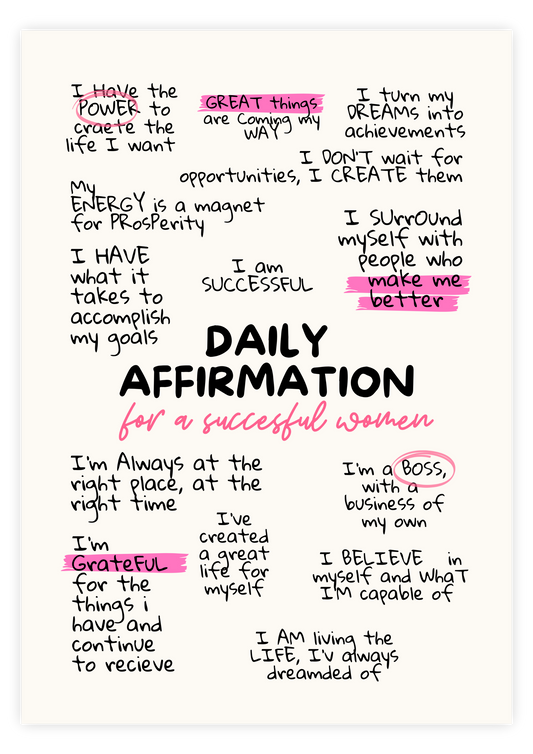 I Have the
POWER to
craete the
life I want
GREAT things
are Coming my
WAY
I turn my
DREAMS into
achievements
I DON'T wait for
opportunities, I CREATE them
My
ENERGY is a magnet
for PRosPerity
I SUrrOUnd
mySelf with
people who
make me
better
I HAVE
what it
takes to
accomplish
my goals
I am
SUCCESSFUL
DAILY
AFFIRMATION
for a succesful women
I'm Always at the
right place, at the
right time
I'm a BOSS,
with a
business of
my own
I've
created
a great
life for
myself
I'm
GrateFUL
for the
things i
have and
continue
to recieve
I BELIEVE in
myself and WhaT
I'M capable of
I AM living the
LIFE, I'v always
dreamded of